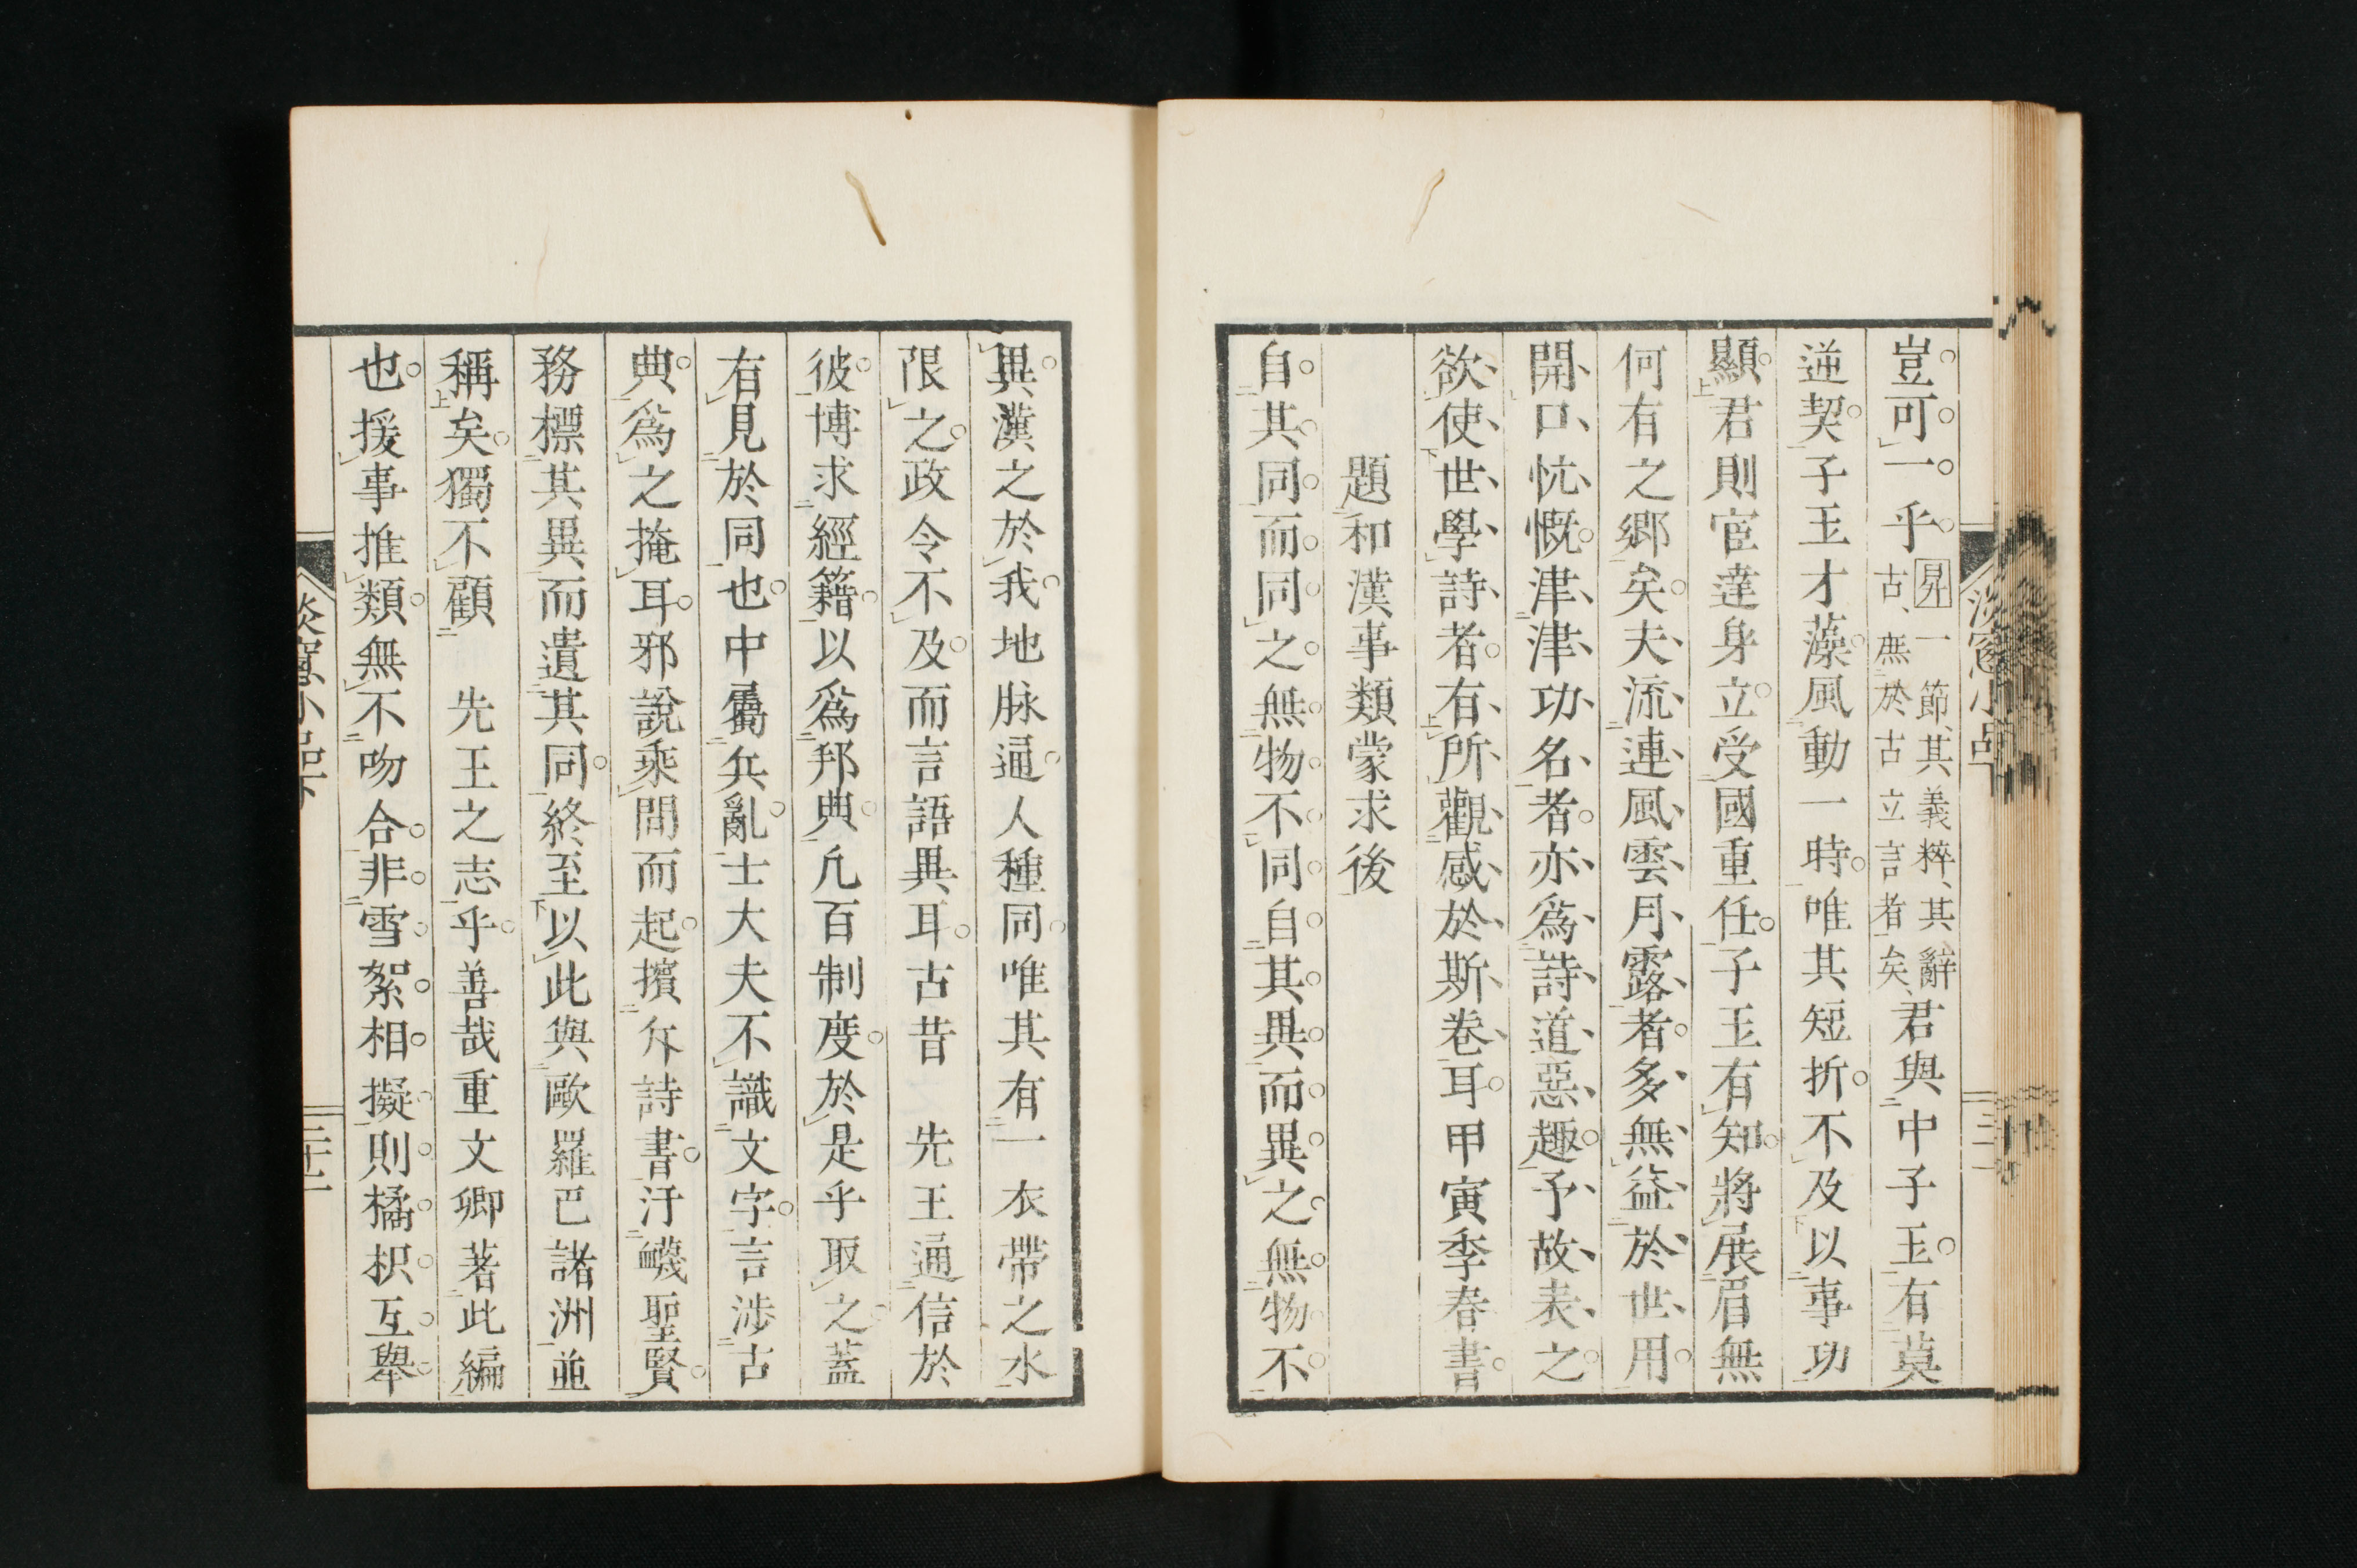 豈可一乎昇一節其義粹其辭古無於古立言者矣君與中子玉有莫
逆契子玉才藻風動一時唯其短折不及以事功
顯君則宦達身立受國重任子玉有知將展眉無
何有之郷矣夫流連風雲月露者多無益於世用
開口忼慨津津功名者亦爲詩道惡趣予故表之
欲使世學詩者有所觀感於斯卷耳甲寅季春書
題和漢事類蒙求後
自其同而同之無物不同自其異而異之無物不
異漢之於我地脉通人種同唯其有一衣帶之水
限之政令不及而言語異耳古昔 先王通信於
彼博求經籍以爲邦典凡百制度於是乎取之蓋
有見於同也中屬兵亂士大夫不識文字言渉古
典爲之掩耳邪說乘間而起擯斥詩書汙衊聖賢
務標其異而遺其同終至以此與歐羅巴諸洲並
稱矣獨不顧 先王之志乎善哉重文卿著此編
也援事推類無不吻合非雪絮相擬則橘枳互舉